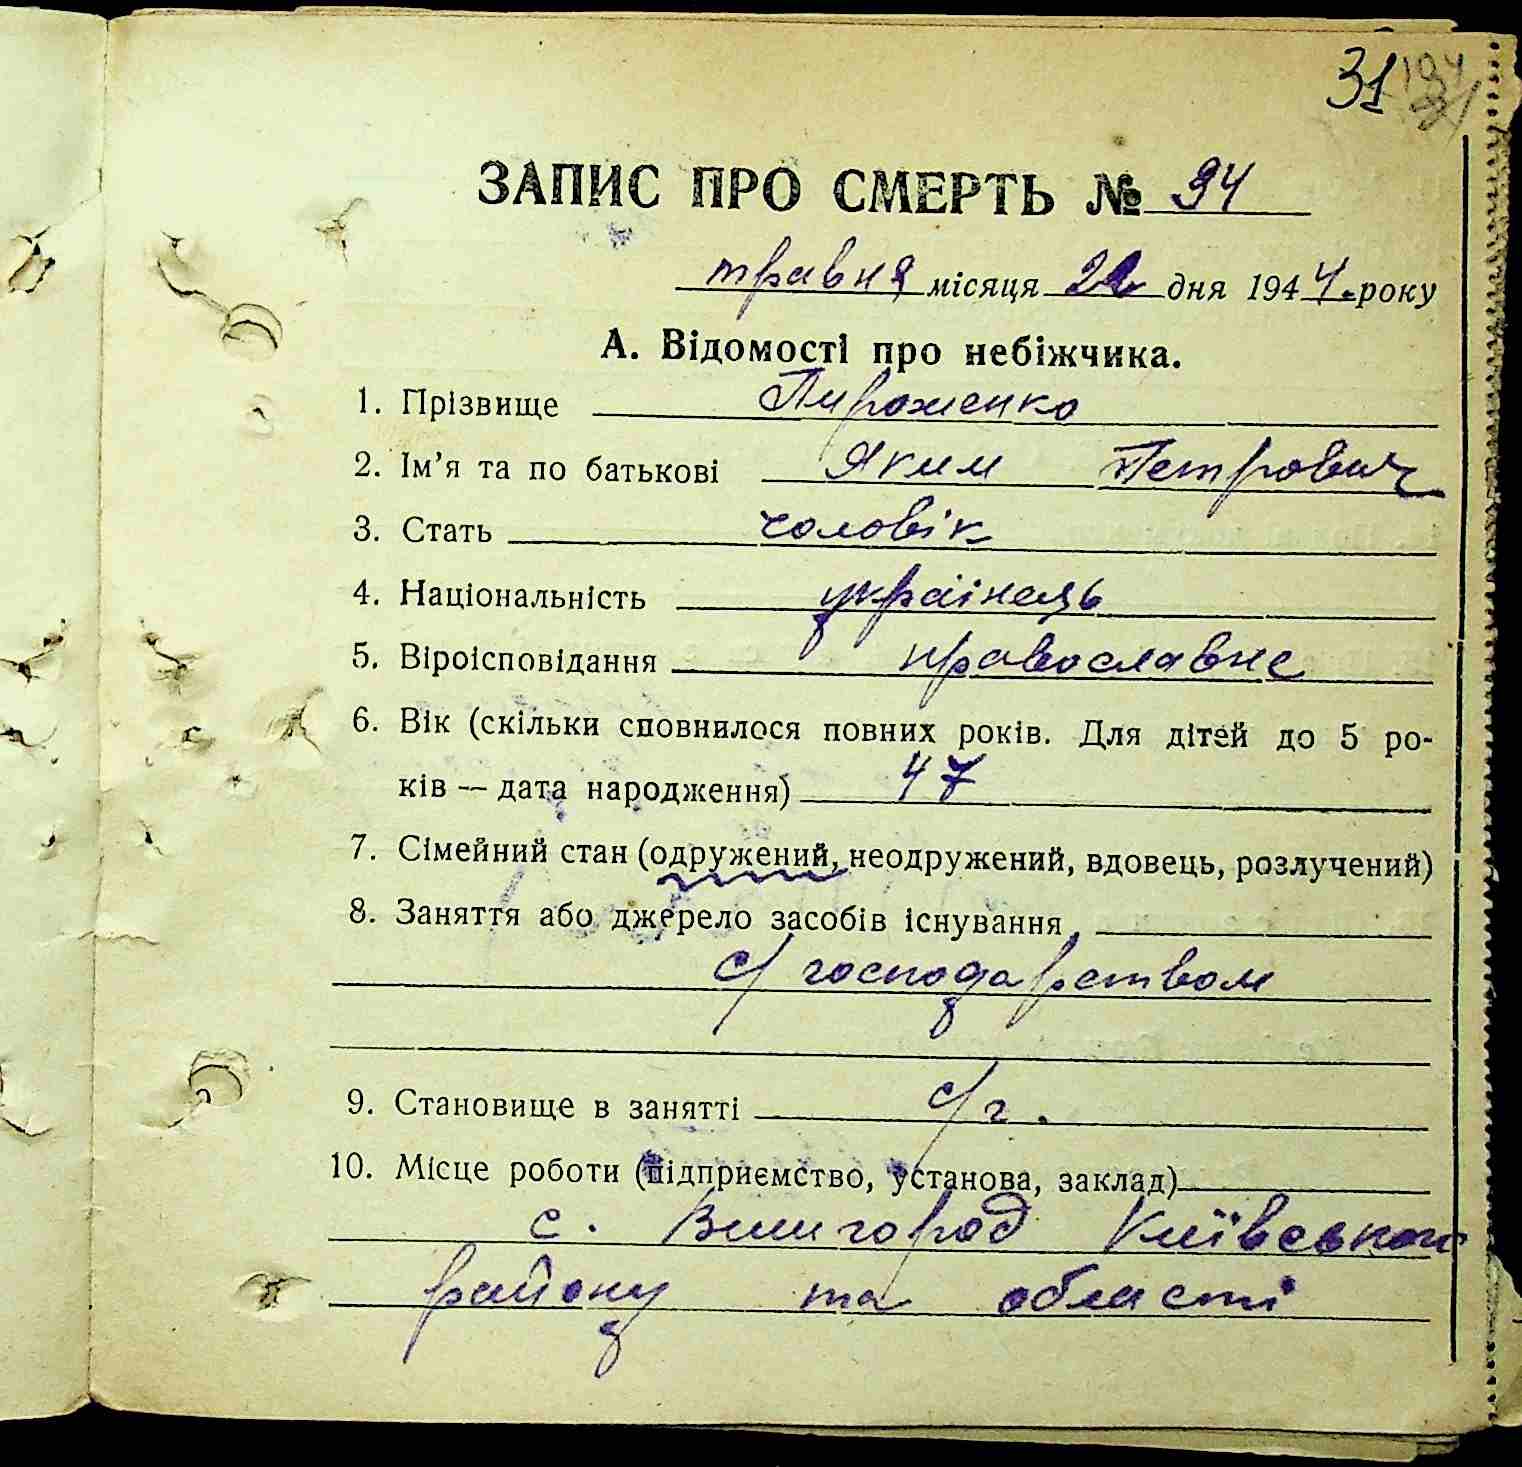 31
ЗАПИС ПРО СМЕРТЬ № 94
травня місяця 22 дня 1944. року
А. Відомості про небіжчика.
1. Прізвище Пироженко
2. Ім'я та по батькові Яким Петрович
3. Стать чоловік
4. Національність українець
5. Віроісповідання православне
6. Вік (скільки сповнилося повних років. Для дітей до 5 ро-
ків — дата народження) 47
7. Сімейний стан (одружений, неодружений, вдовець, розлучений)
8. Заняття або джерело засобів існування
с/господарством
9. Становище в занятті с/г.
10. Місце роботи (підприємство, установа, заклад)
с. Вишгород Київського
району та області